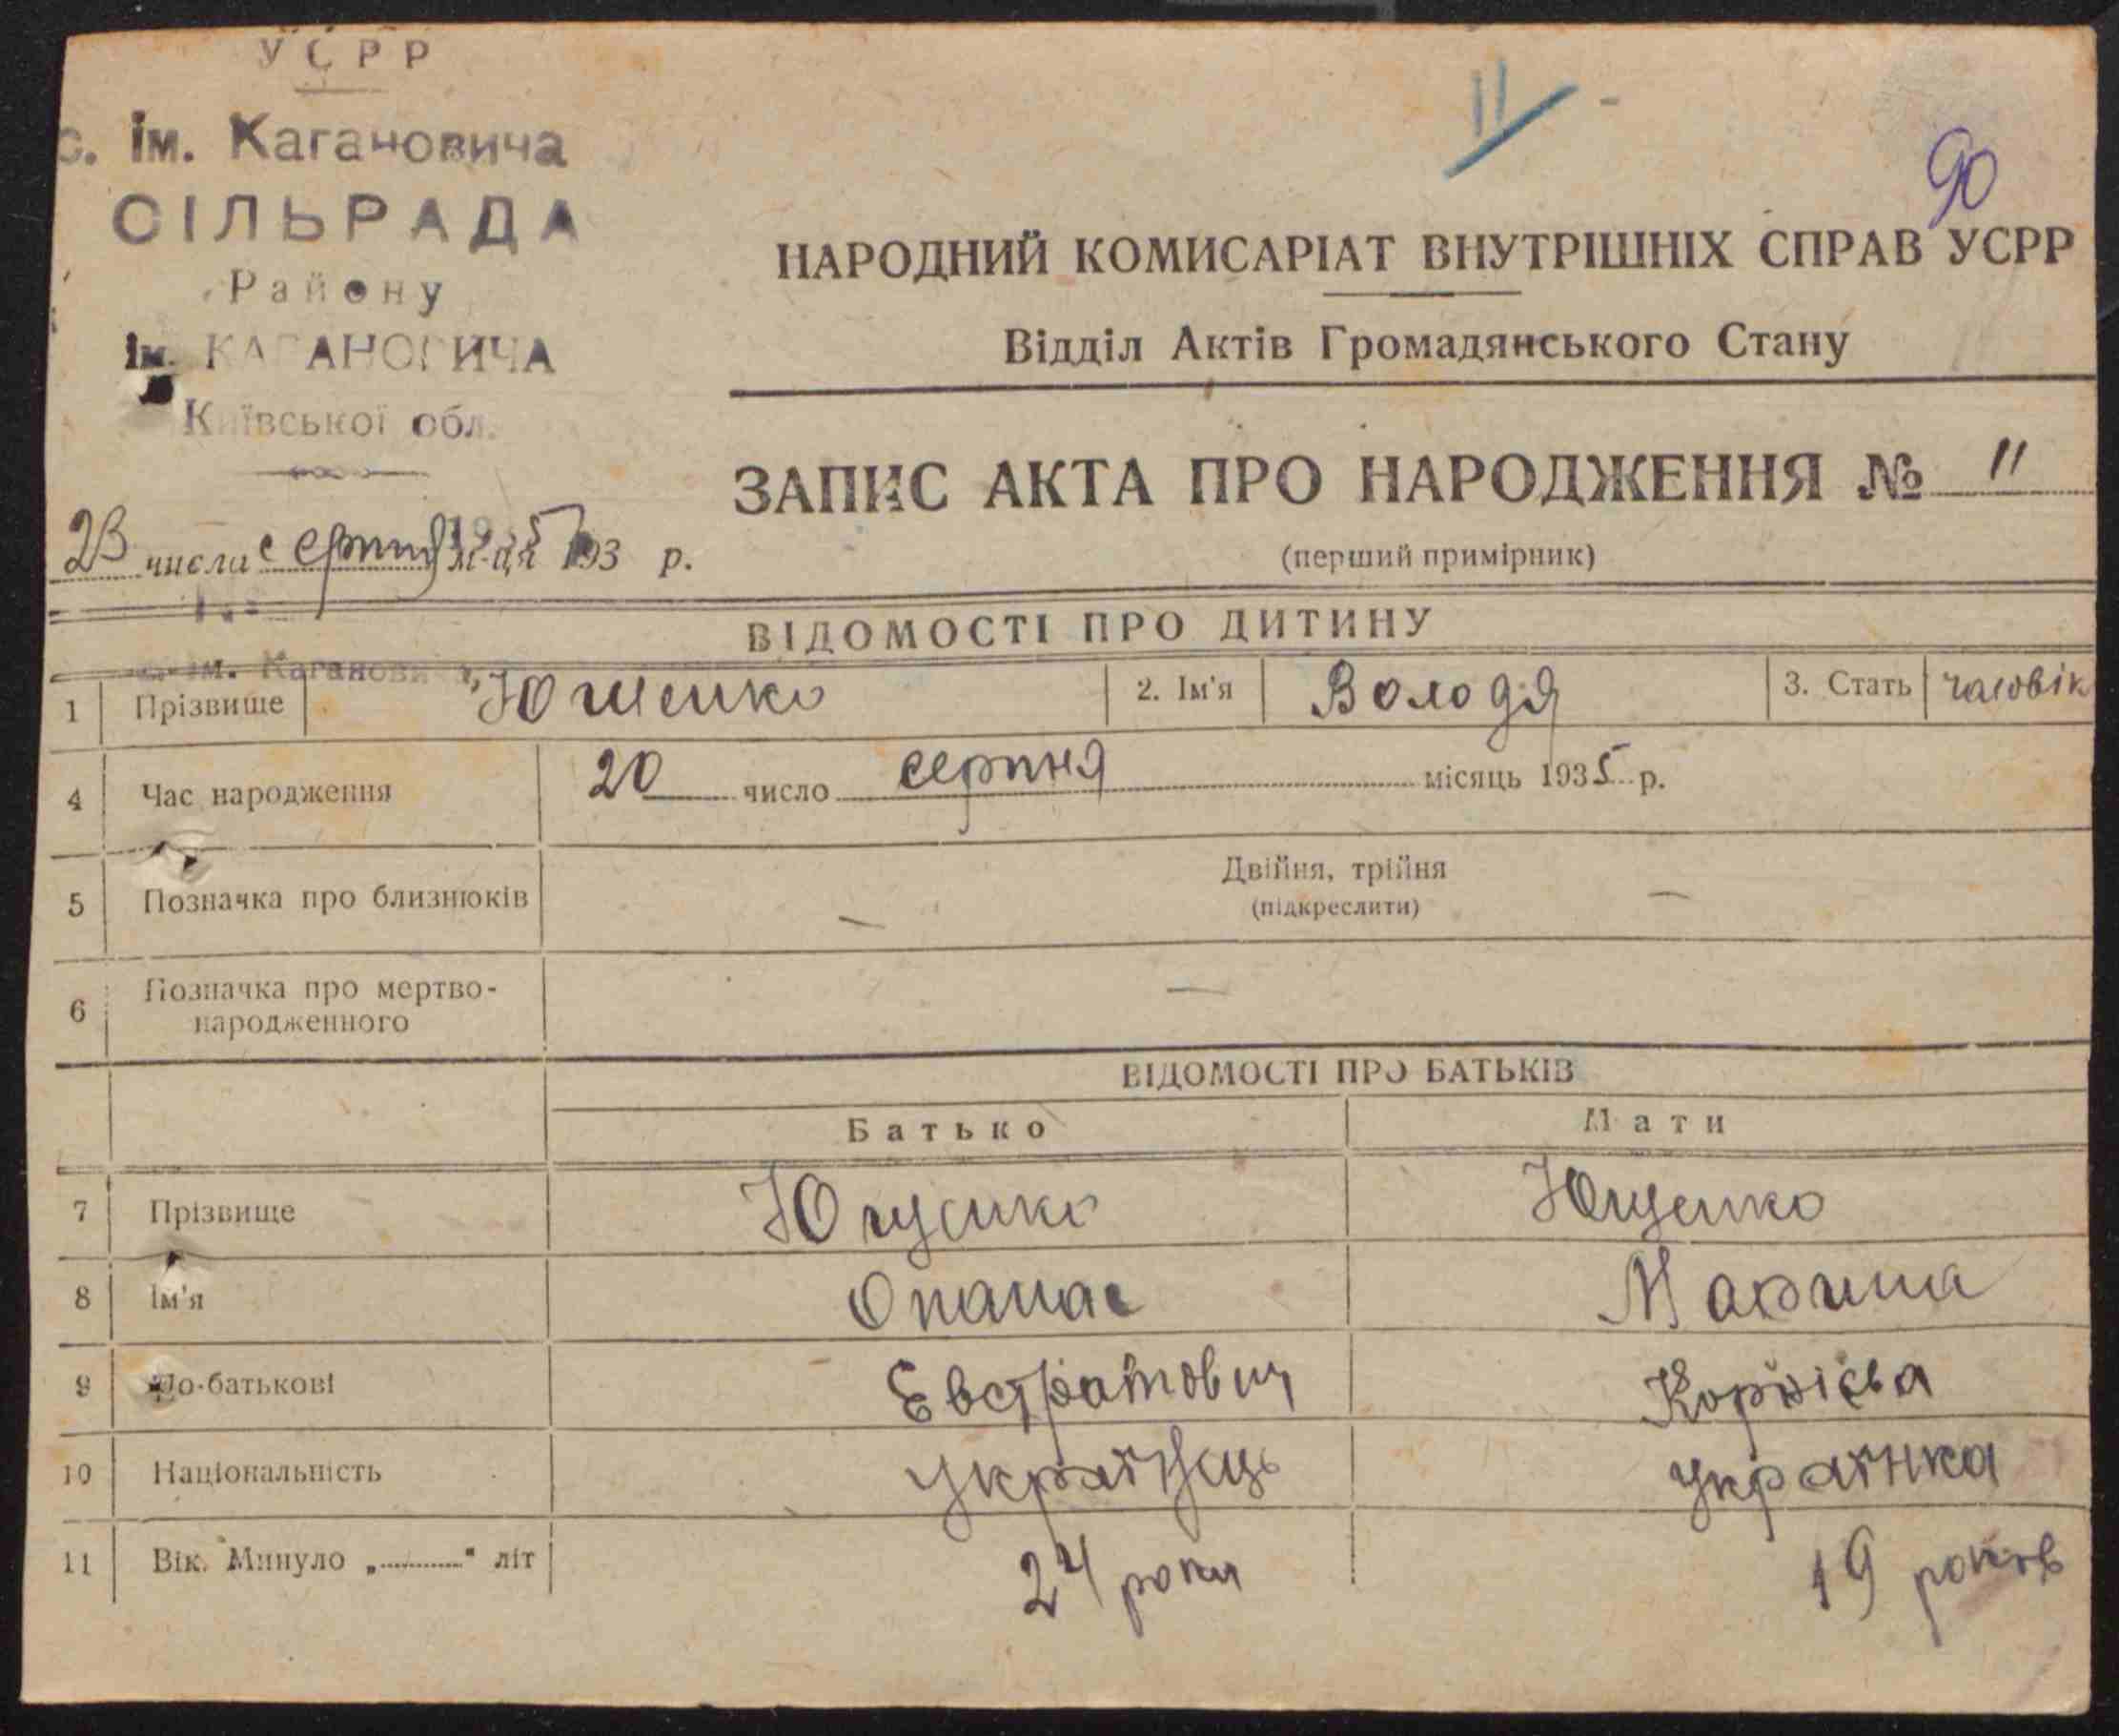 УСРР
с. ім. Кагановича
СІЛЬРАДА
Району
ім. КАГАНОВИЧА
Київської обл.
11
90
НАРОДНИЙ КОМИСАРІАТ ВНУТРІШНІХ СПРАВ УСРР
Відділ Актів Громадянського Стану
ЗАПИС АКТА ПРО НАРОДЖЕННЯ № 11
(перший примірник)
23 числа серпня м-ця 1935 р.
ВІДОМОСТІ ПРО ДИТИНУ
ім. Каганови
1 Прізвище Ющенко 2. Ім'я Володя 3. Стать чаловік
4 Час народження 20 число серпня місяць 1935 р.
5 Позначка про близнюків — Двійня, трійня —
(підкреслити)
6 Позначка про мертво-
народженного —
ВІДОМОСТІ ПРО БАТЬКІВ
Батько Мати
7 Прізвище Ющенко Ющенко
8 Ім'я Опанас Марина
9 По-батькові Евстратович Корнієва
10 Національність Українець Українка
11 Вік. Минуло „............" літ 24 роки 19 років